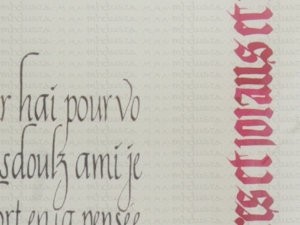 r hai pour vo
sdoulz ami je
ort en ia pensée
res et joiaus et